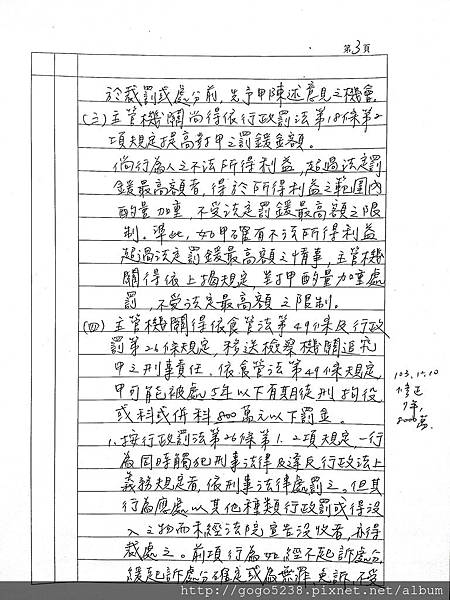 第3頁
於裁罰或處分前,先予甲陳述意見之機會。
(三)主管機關尚得依行政罰法第18條第2
項規定提高對甲之罰鍰金額。
倘行為人之不法所得利益,超過法定罰
鍰最高額者,得於所得利益之範圍內
酌量加重,不受法定罰鍰最高額之限
制。準此,如甲確有不法所得利益
超過法定罰鍰最高額之情事,主管機
關得依上揭規定,對甲酌量加重處
罰,不受法定最高額之限制。
(四)主管機關得依食管法第49條及行政
罰第26條規定,移送檢察機關追究
甲之刑事責任,依食管法第49條規定,
甲可能被處5年以下有期徒刑拘役
或科或併科800萬元以下罰金。
103.11.10
修正
7年,
8000萬
1.按行政罰法第26條第1.2項規定一行
為同時觸犯刑事法律及違反行政法上
義務規定者,依刑事法律處罰之。但其
行為應處以其他種類行政罰或得沒
入之物而未經法院宣告沒收者,亦得
裁處之。前項行為如經不起訴處分,
緩起訴處分確定或為無罪、免訴、不受
http://gogo5238.pixnet.net/album